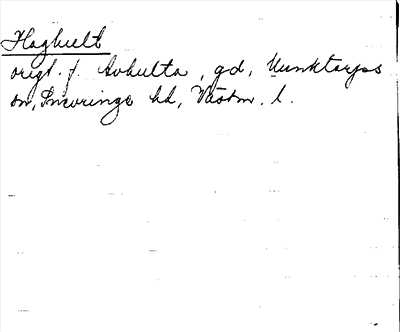 Haghult
origt. f. Avhulta, gd, Munktorps
sn, Snevringe hd, Västm. l.